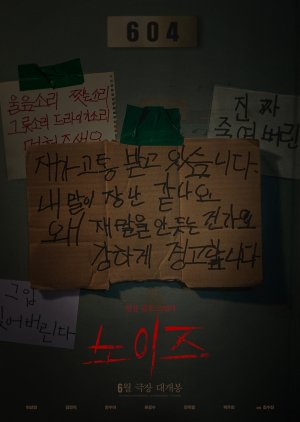 604
울음소리 짖는소리
그릇소리 드라이기소리
진짜
죽여버린
제가 고통 받고 있습니다.
내 말이 장난 같나요
왜 제 말을 안 듣는 건가요
강하게 경고합니다
그 입
찢어버린다
노이즈
6월 극장 대개봉